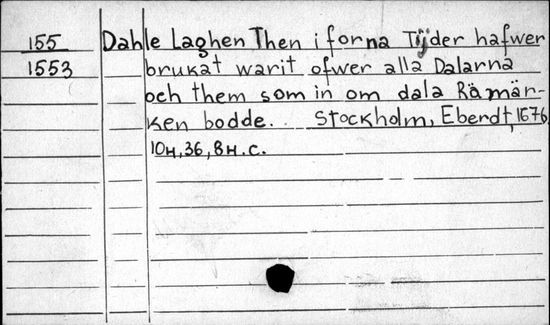 155 Dahle Laghen Then i forna Tijder hafwer
1553 brukat warit ofwer alla Dalarna
och them som in om dala Råmär-
ken bodde. . Stockholm, Eberdt, 1676.
10н, 36, 8н. c.